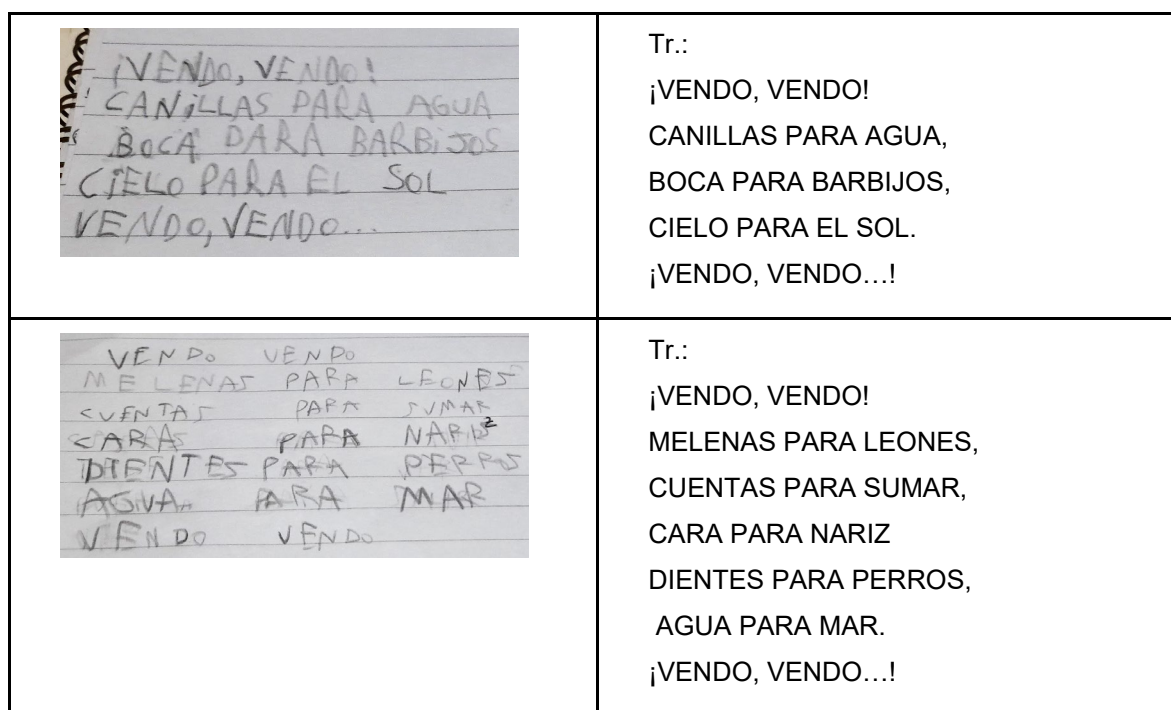 ¡VENDO, VENDO!
CANiLLAS PARA AGUA
BOCA DARA BARBiJOS
CiELO PARA EL SOL
VENDO, VENDO...
Tr.:
¡VENDO, VENDO!
CANILLAS PARA AGUA,
BOCA PARA BARBIJOS,
CIELO PARA EL SOL.
¡VENDO, VENDO…!
VENDO VENDO
MELENAS PARA LEONES
CUENTAS PARA SUMAR
CARAS PARA
DIENTES PARA PERROS
AGUA PARA MAR
VENDO VENDO
Tr.:
¡VENDO, VENDO!
MELENAS PARA LEONES,
CUENTAS PARA SUMAR,
CARA PARA NARIZ
DIENTES PARA PERROS,
AGUA PARA MAR.
¡VENDO, VENDO…!